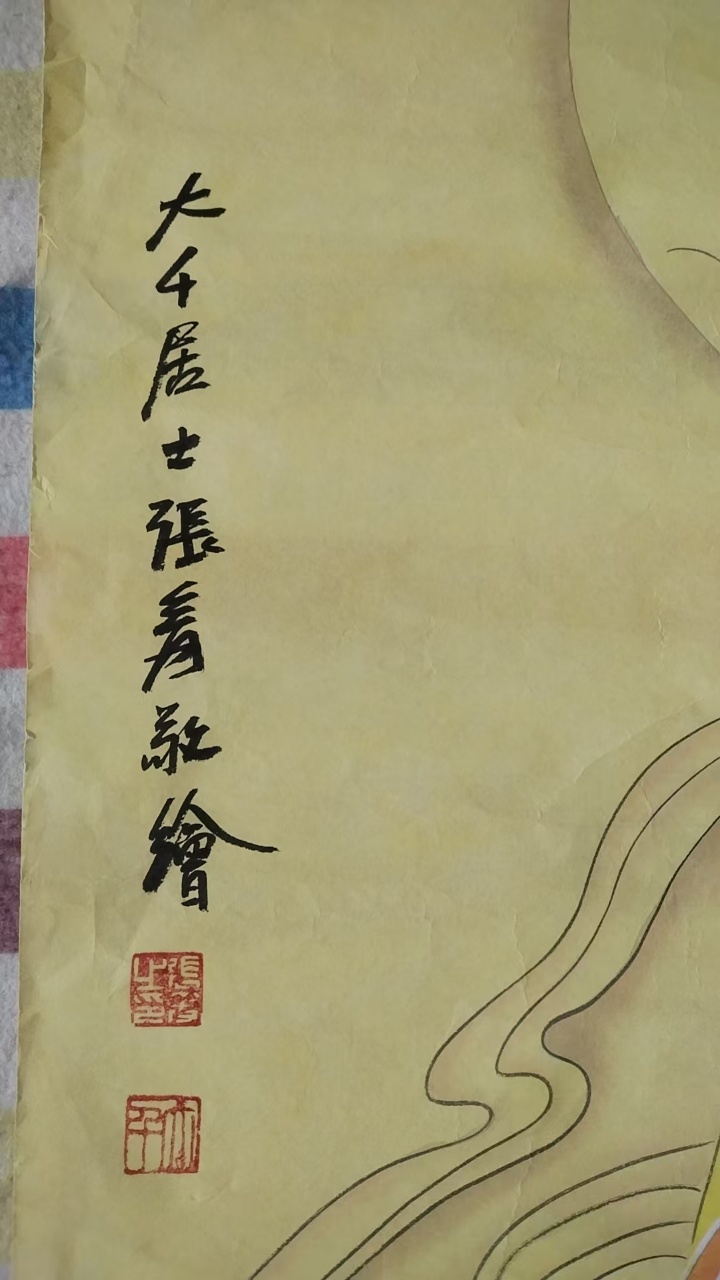 大千居士張爰敬繪
張爰之印
大千